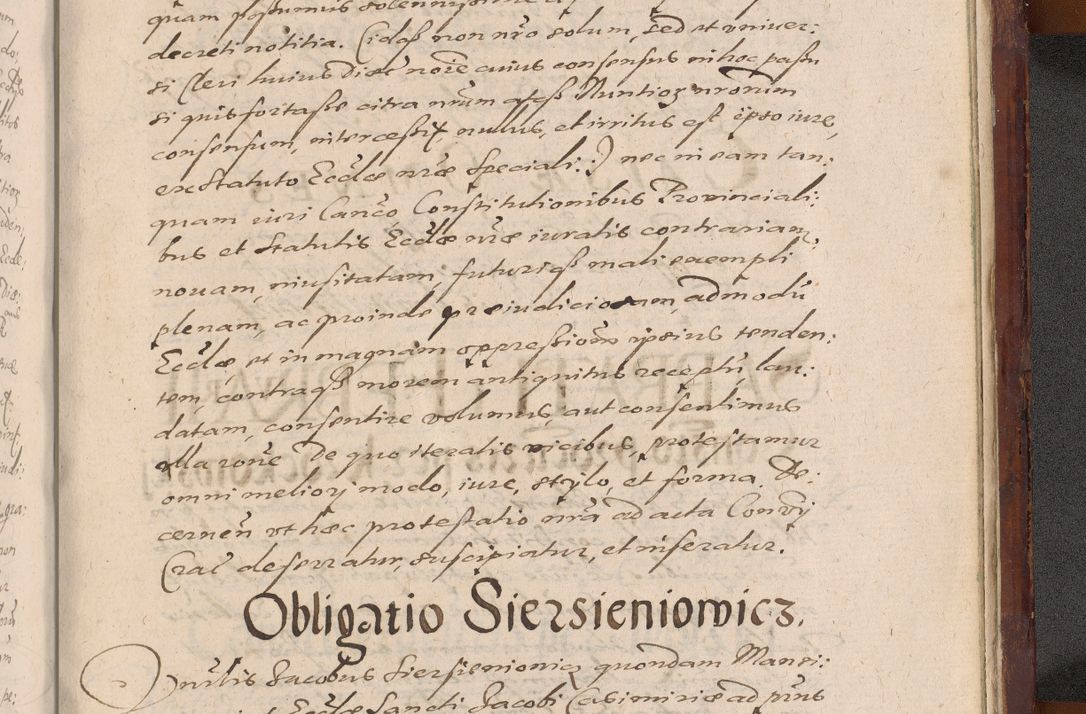 quam possumus solennissime
decreti notitia. (idq3 non nro solum, sed et vniuer:
si Cleri huius Dioec noie cuius consensus in hoc passu
si quis fortasse citra nrum atq3 Nuntior nrorum
consensum, intercessit, nullus, et irritus est ipso iure,
ex Statuto Ecclae nrae Speciali:) nec in eam tan:
quam iuri Canco, Constitutionibus Prouinciali:
bus et Statutis Ecclae nrae iuratis contrariam,
nouam, inusitatam, futuriq3 mali exempli
plenam, ac proinde praeiudiciosam, admodu
Ecclae, et in magnam oppressionem ipsius tenden:
tem, contraq3 morem antiquitus receptu, lau:
datam, consentire volumus, aut consentimus
vlla rone De quo iteratis vicibus, protestamur
omni meliori modo, iure, stylo, et forma. De:
cernen vt haec protestatio nra ad acta Convn
Crac deferratur, suscipiatur, et inseratur.
Obligatio Siersieniowicz.
Jacobus Siersienionicz quondam Mansi:
Ecclae Sancti Jacobi Casimiriae ad pnus